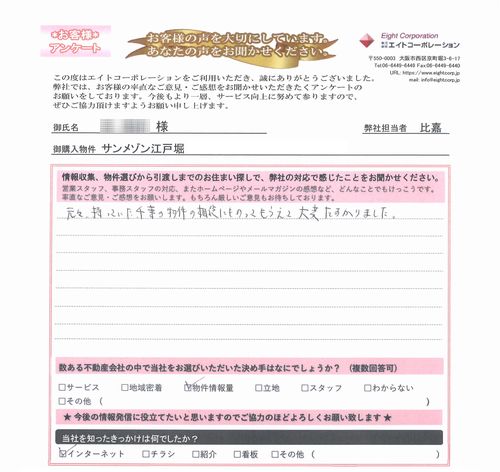 *お客様*
アンケート
お客様の声を大切にしています。
あなたの声をお聞かせください。
Eight Corporation
エイトコーポレーション
〒550-0003 大阪市西区京町堀3-6-17
Tel:06-6449-6449 Fax:06-6449-6440
URL: https://www.eightcorp.jp
mail: info@eightcorp.jp
この度はエイトコーポレーションをご利用いただき、誠にありがとうございました。
弊社では、お客様の率直なご意見・ご感想をお聞かせいただきたくアンケートの
お願いをしております。今後もより一層、サービス向上に努めて参りますので、
ぜひご協力頂けますようお願い申し上げます。
御氏名 様 弊社担当者 比嘉
御購入物件 サンメゾン江戸堀
情報収集、物件選びから引渡しまでのお住まい探しで、弊社の対応で感じたことをお聞かせください。
営業スタッフ、事務スタッフの対応、またホームページやメールマガジンの感想など、どんなことでもけっこうです。
率直なご意見・ご感想をお願いします。もちろん厳しいご意見もお待ちしております。
元々、持っていた千葉の物件の相談にものってもらえて大変たすかりました。
数ある不動産会社の中で当社をお選びいただいた決め手はなにでしょうか？ （複数回答可）
□サービス □地域密着 ☑物件情報量 □立地 □スタッフ □わからない
□その他（ ）
★ 今後の情報発信に役立てたいと思いますのでご協力のほどよろしくお願い致します ★
当社を知ったきっかけは何でしたか？
☑インターネット □チラシ □紹介 □看板 □その他（ ）